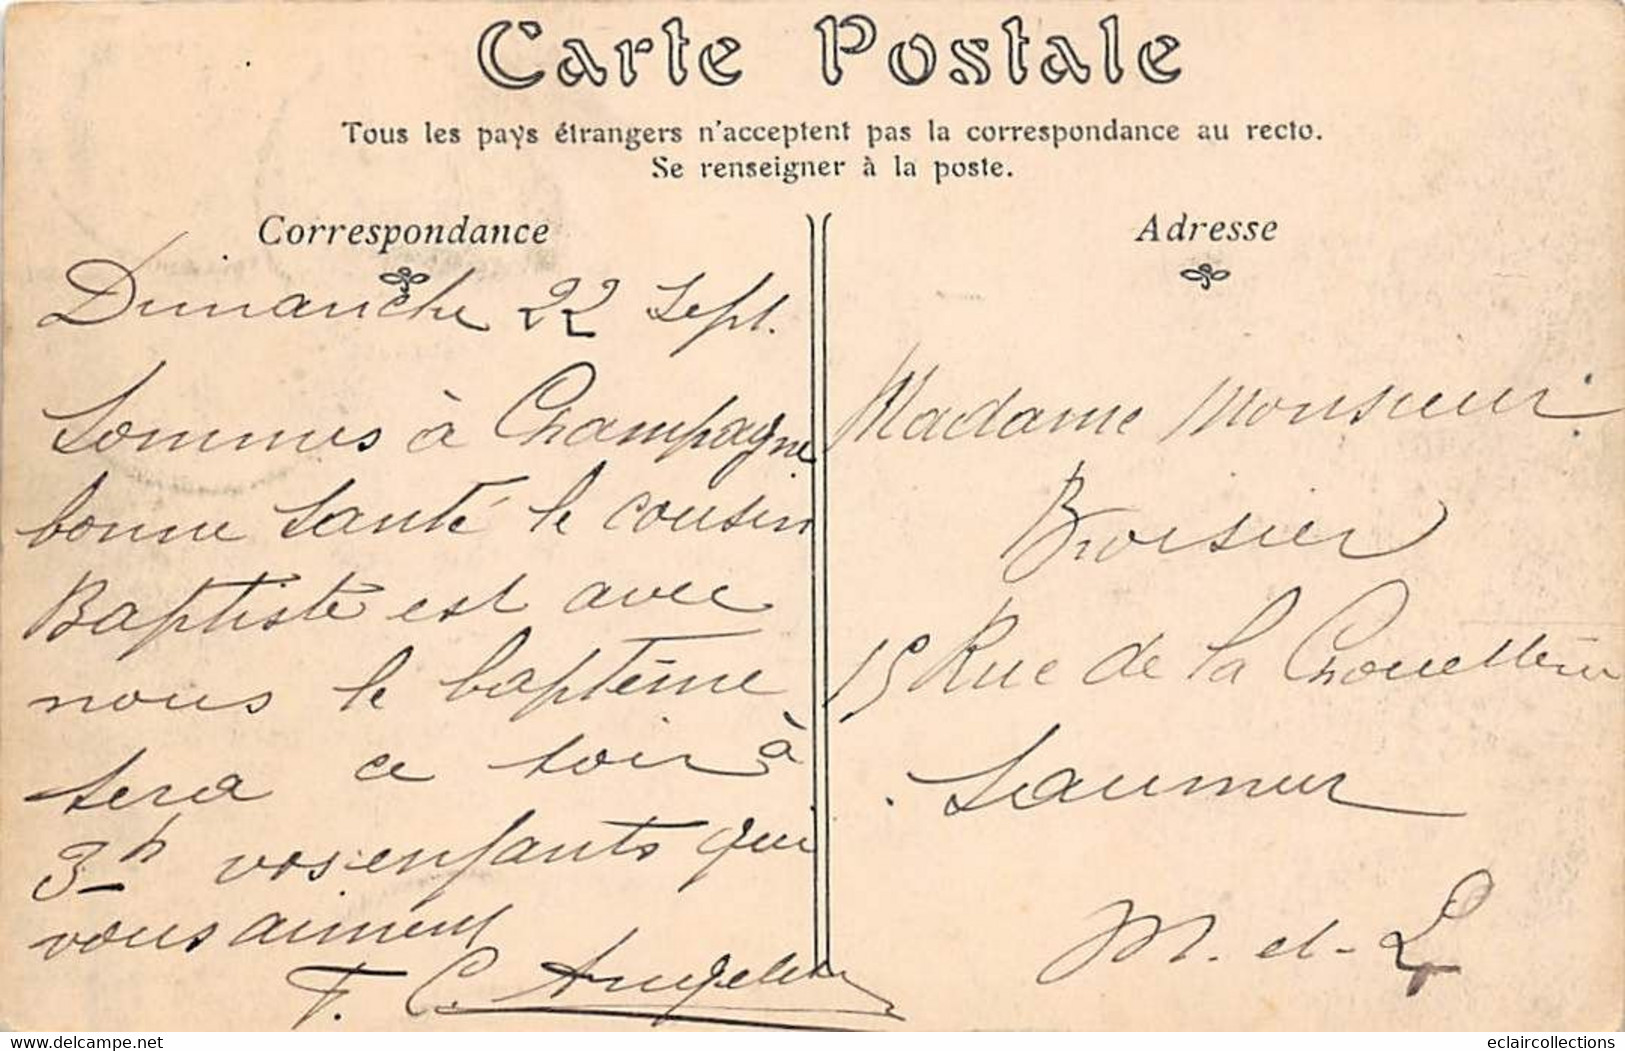 Carte Postale
Tous les pays étrangers n'acceptent pas la correspondance au recto.
Se renseigner à la poste.
Correspondance
Dimanche 22 Sept.
Sommes à Champagne
bonne santé le cousin
Baptiste est avec
nous le baptême
sera ce soir à
3h vos enfants qui
vous aiment
F. C. Angele
Adresse
Madame Monsieur
Broisier
15 Rue de la Chouetterie
Saumur
M.-et-L
www.delcampe.net
eclaircollections